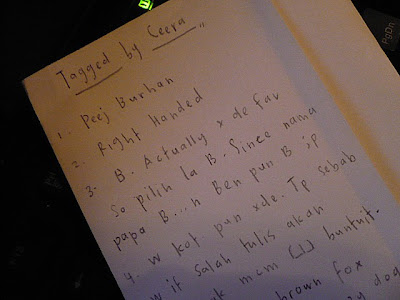 Tagged by Ceera..
1. Peej Burhan
2. Right Handed
3. B. Actually x de fav
So pilih la B. Since nama
papa B...n Ben pun B ;p
4. W kot pan xde. Tp sebab
W if salah tulis akan
mcm (_|_) buntuit.
brown fox
dog
PgDn